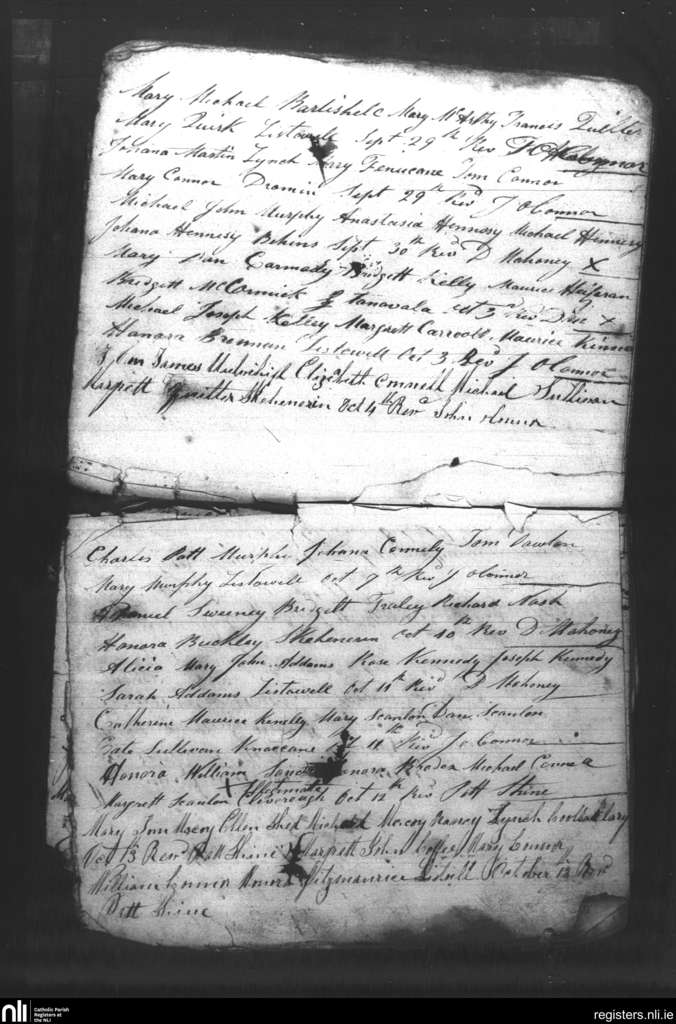 Mary Michael Bartishel & Mary McArthy Francis Quilter
Mary Quirk Listowell Sept 29th Rev J OConnor
Johana Martin Lynch Mary Fenucane Tom Connor
Mary Connor Dromin Sept 29th Revd J OConnor
Michael John Murphy Anastasia Hennosy Michael Hennesy
Johana Hennesy Behins Sept 30th Revd D Mahoney X
Mary Dan Carmady Bridgett Kelly Maurice
Bridgett McCormick Oct 3rd Revd X
Michael Joseph Kelley Margrett Carroll Maurice
Hanora Brennan Listowell Oct 3 Revd J OConnor
James Elizabeth Connell Michael Sullivan
Margrett Quilter Skehenerin Oct 4th Revd John
Charles Patt Murphy Johana Connely Tom Dawlon
Mary Murphy Listowell Oct 7th Revd J OConnor
Daniel Sweeney Bridgett Fraley Richard Nash
Hanora Buckley Skehenerin Oct 10th Rev D Mahoney
Alicia Mary John Addams Rose Kennedy Joseph Kennedy
Sarah Addams Listowell Oct 11th Revd D Mahoney
Catherine Maurice Kenelly Mary Scanlon Dan Scanlon
Sullivan Knoccane Oct 11th Revd J OConnor
Honora William Honora Rhodea Michael
Margrett Scanlon X Oct 12th Revd Patt Shine
Mary Ellen Shea Michael Nancy Lynch
Oct 13 Revd Patt Shine Margrett John Mary Connor
William Connor Honora Fitzmaurice October 13 Revd
Patt Shine
nli
Catholic Parish
Registers at
the NLI
registers.nli.ie